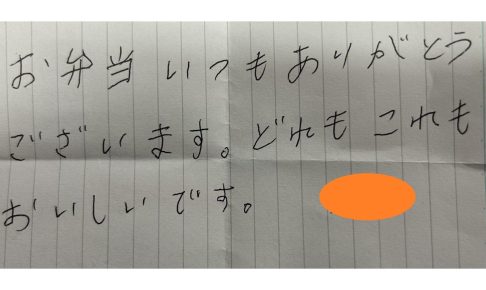 お弁当いつもありがとう
ございます。どれもこれも
おいしいです。